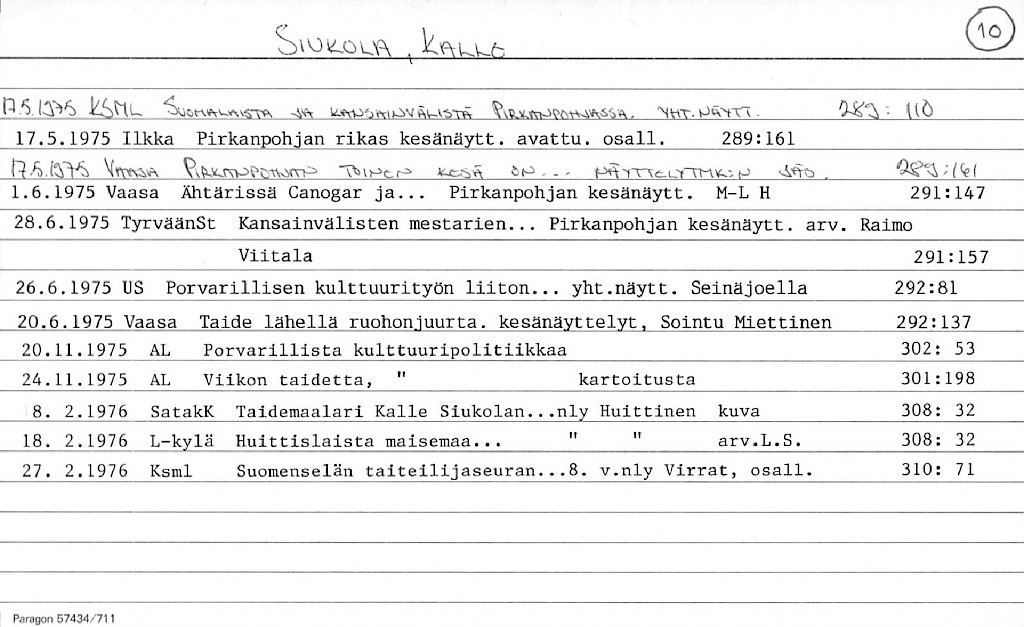 10
SIUKOLA, KALLE
17.5.1975 KSML SUOMALAISTA JA KANSAINVÄLISTÄ PIRKANPOHJASSA. YHT.NÄYTT. 289: 110
17.5.1975 Ilkka Pirkanpohjan rikas kesänäytt. avattu. osall. 289:161
17.5.1975 VAASA PIRKANPOHJAN TOINEN KESÄ ON... NÄYTTELYTMK:N JÄS. 289:161
1.6.1975 Vaasa Ähtärissä Canogar ja... Pirkanpohjan kesänäytt. M-L H 291:147
28.6.1975 TyrväänSt Kansainvälisten mestarien... Pirkanpohjan kesänäytt. arv. Raimo
Viitala 291:157
26.6.1975 US Porvarillisen kulttuurityön liiton... yht.näytt. Seinäjoella 292:81
20.6.1975 Vaasa Taide lähellä ruohonjuurta. kesänäyttelyt, Sointu Miettinen 292:137
20.11.1975 AL Porvarillista kulttuuripolitiikkaa 302: 53
24.11.1975 AL Viikon taidetta, " kartoitusta 301:198
8. 2.1976 SatakK Taidemaalari Kalle Siukolan...nly Huittinen kuva 308: 32
18. 2.1976 L-kylä Huittislaista maisemaa... " " arv.L.S. 308: 32
27. 2.1976 Ksml Suomenselän taiteilijaseuran...8. v.nly Virrat, osall. 310: 71
Paragon 57434/711